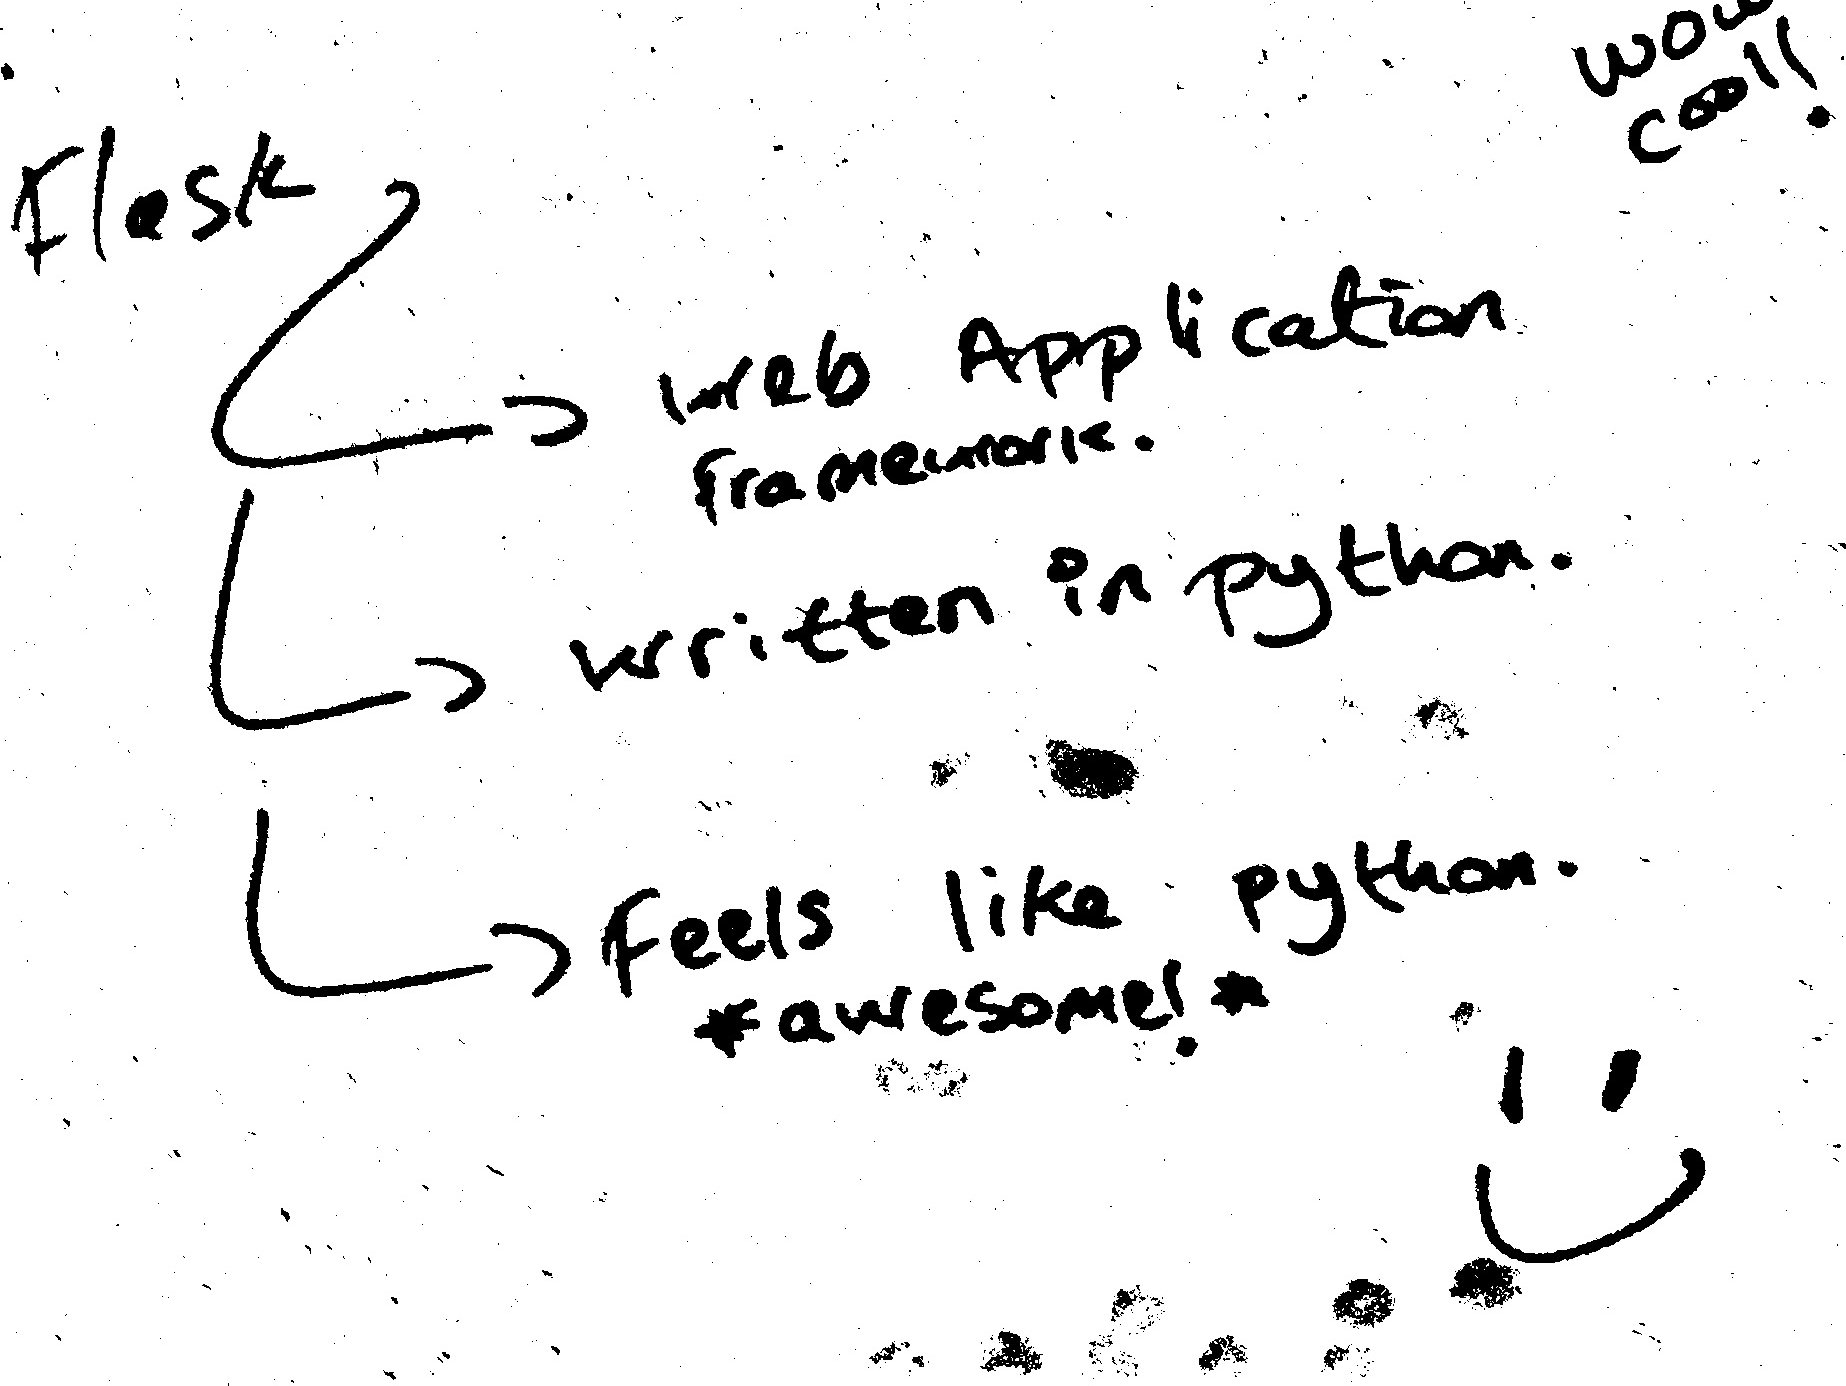 wow
cool!
Flask
Web Application
framework.
written in python.
Feels like python.
*awesome!*